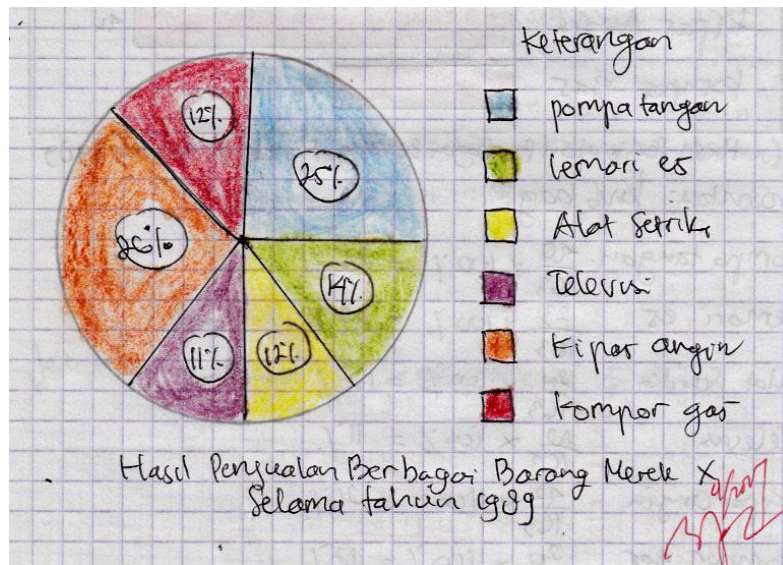 Keterangan
12%
25%
pompa tangan
lemari es
26%
14%
Alat Setrika
Televisi
11%
12%
Kipas angin
Kompor gas
Hasil Penjualan Berbagai Barang Merek X
Selama tahun 1989